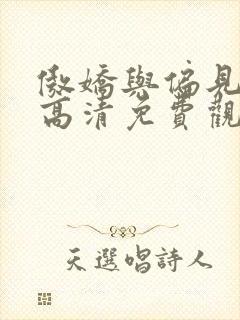 傲嬌與偏見
高清免費觀
天選唱詩人